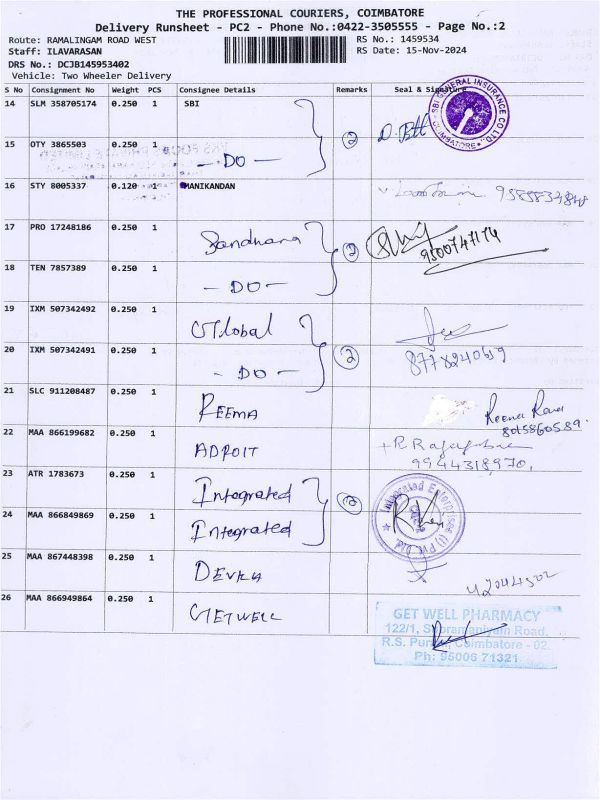 THE PROFESSIONAL COURIERS, COIMBATORE
Delivery Runsheet - PC2 - Phone No.:0422-3505555 - Page No.:2
Route: RAMALINGAM ROAD WEST RS No.: 1459534
Staff: ILAVARASAN RS Date: 15-Nov-2024
DRS No.: DCJB145953402
Vehicle: Two Wheeler Delivery
S No Consignment No Weight PCS Consignee Details Remarks Seal & Signature
14 SLM 358705174 0.250 1 SBI
SBI GENERAL INSURANCE CO LTD. COIMBATORE
15 OTY 3865503 0.250 1 - DO - 2
16 STY 8005337 0.120 1 MANIKANDAN
17 PRO 17248186 0.250 1 Sandhana 2 9500747174
18 TEN 7857389 0.250 1 - DO -
19 IXM 507342492 0.250 1 Global
20 IXM 507342491 0.250 1 - DO - 2 8778240619
21 SLC 911208487 0.250 1 REEMA Reena 8015860589.
22 MAA 866199682 0.250 1 ADROIT 9944318970,
23 ATR 1783673 0.250 1 Integrated 2
Integrated Enterprises (I) Pvt. Ltd.
24 MAA 866849869 0.250 1 Integrated
25 MAA 867448398 0.250 1 42044502
26 MAA 866949864 0.250 1 GETWELL
GET WELL PHARMACY
122/1, Subramaniyam Road,
R.S. Coimbatore - 02.
Ph: 95006 71321